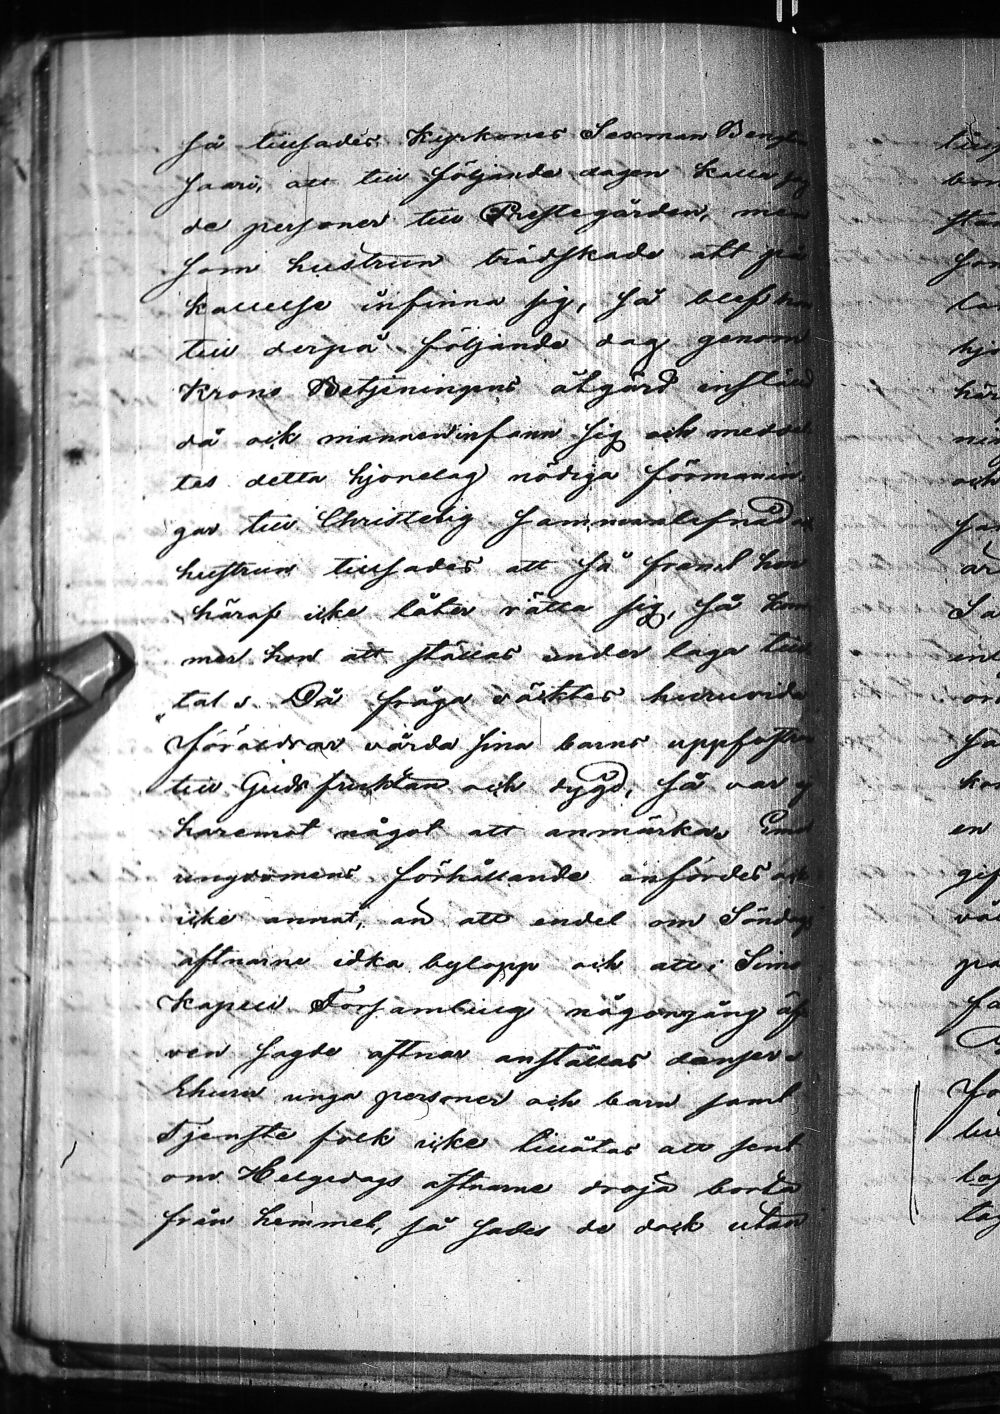 så tillsades Kyrkones Sexman Bengt
Saari, att till följande dagen kalla
de personer till Prestegården, men
som hustrun trädskade att på
kallelse infinna sig, så blef hon
till derpå följande dag genom
Krono Betjeningens åtgärd instäld
då ock mannen infann sig och meddel
tes detta hjonelag nödiga förmanin
gar till Christelig sammanlefnad
hustrun tillsades att så framt hon
häraf icke låter rätta sig, så kom
mer hon att ställas under laga till
tal. Då fråga väcktes huruvida
föräldrar vårda sina barns uppfostran
till Gudsfruktan och dygd, så var ej
häremot något att anmärka. Emot
ungdomens förhållande anfördes ock
icke annat, än att endel om Söndags
aftnarne idka bylopp och att i Simo
Kapell Församling någongång äf
ven sagde aftnar anställas danser.
Ehuru unga personer och barn samt
Tjenste folk icke tillåtas att sent
om Helgedags aftnarne dröja borta
från hemmet, så sades de dock utan